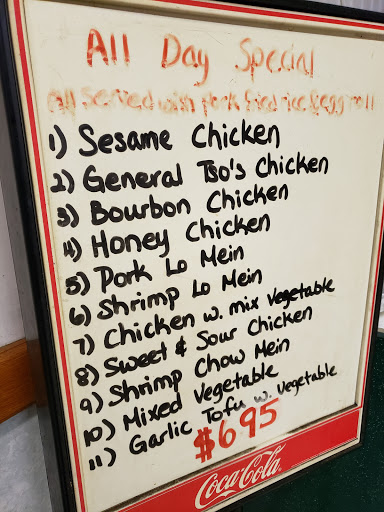 All Day Special
all served with pork fried rice & egg roll
1) Sesame Chicken
2) General Tso's Chicken
3) Bourbon Chicken
4) Honey Chicken
5) Pork Lo Mein
6) Shrimp Lo Mein
7) Chicken w. mix Vegetable
8) Sweet & Sour Chicken
9) Shrimp Chow Mein
10) Mixed Vegetable
11) Garlic Tofu w. Vegetable
$695
Coca-Cola